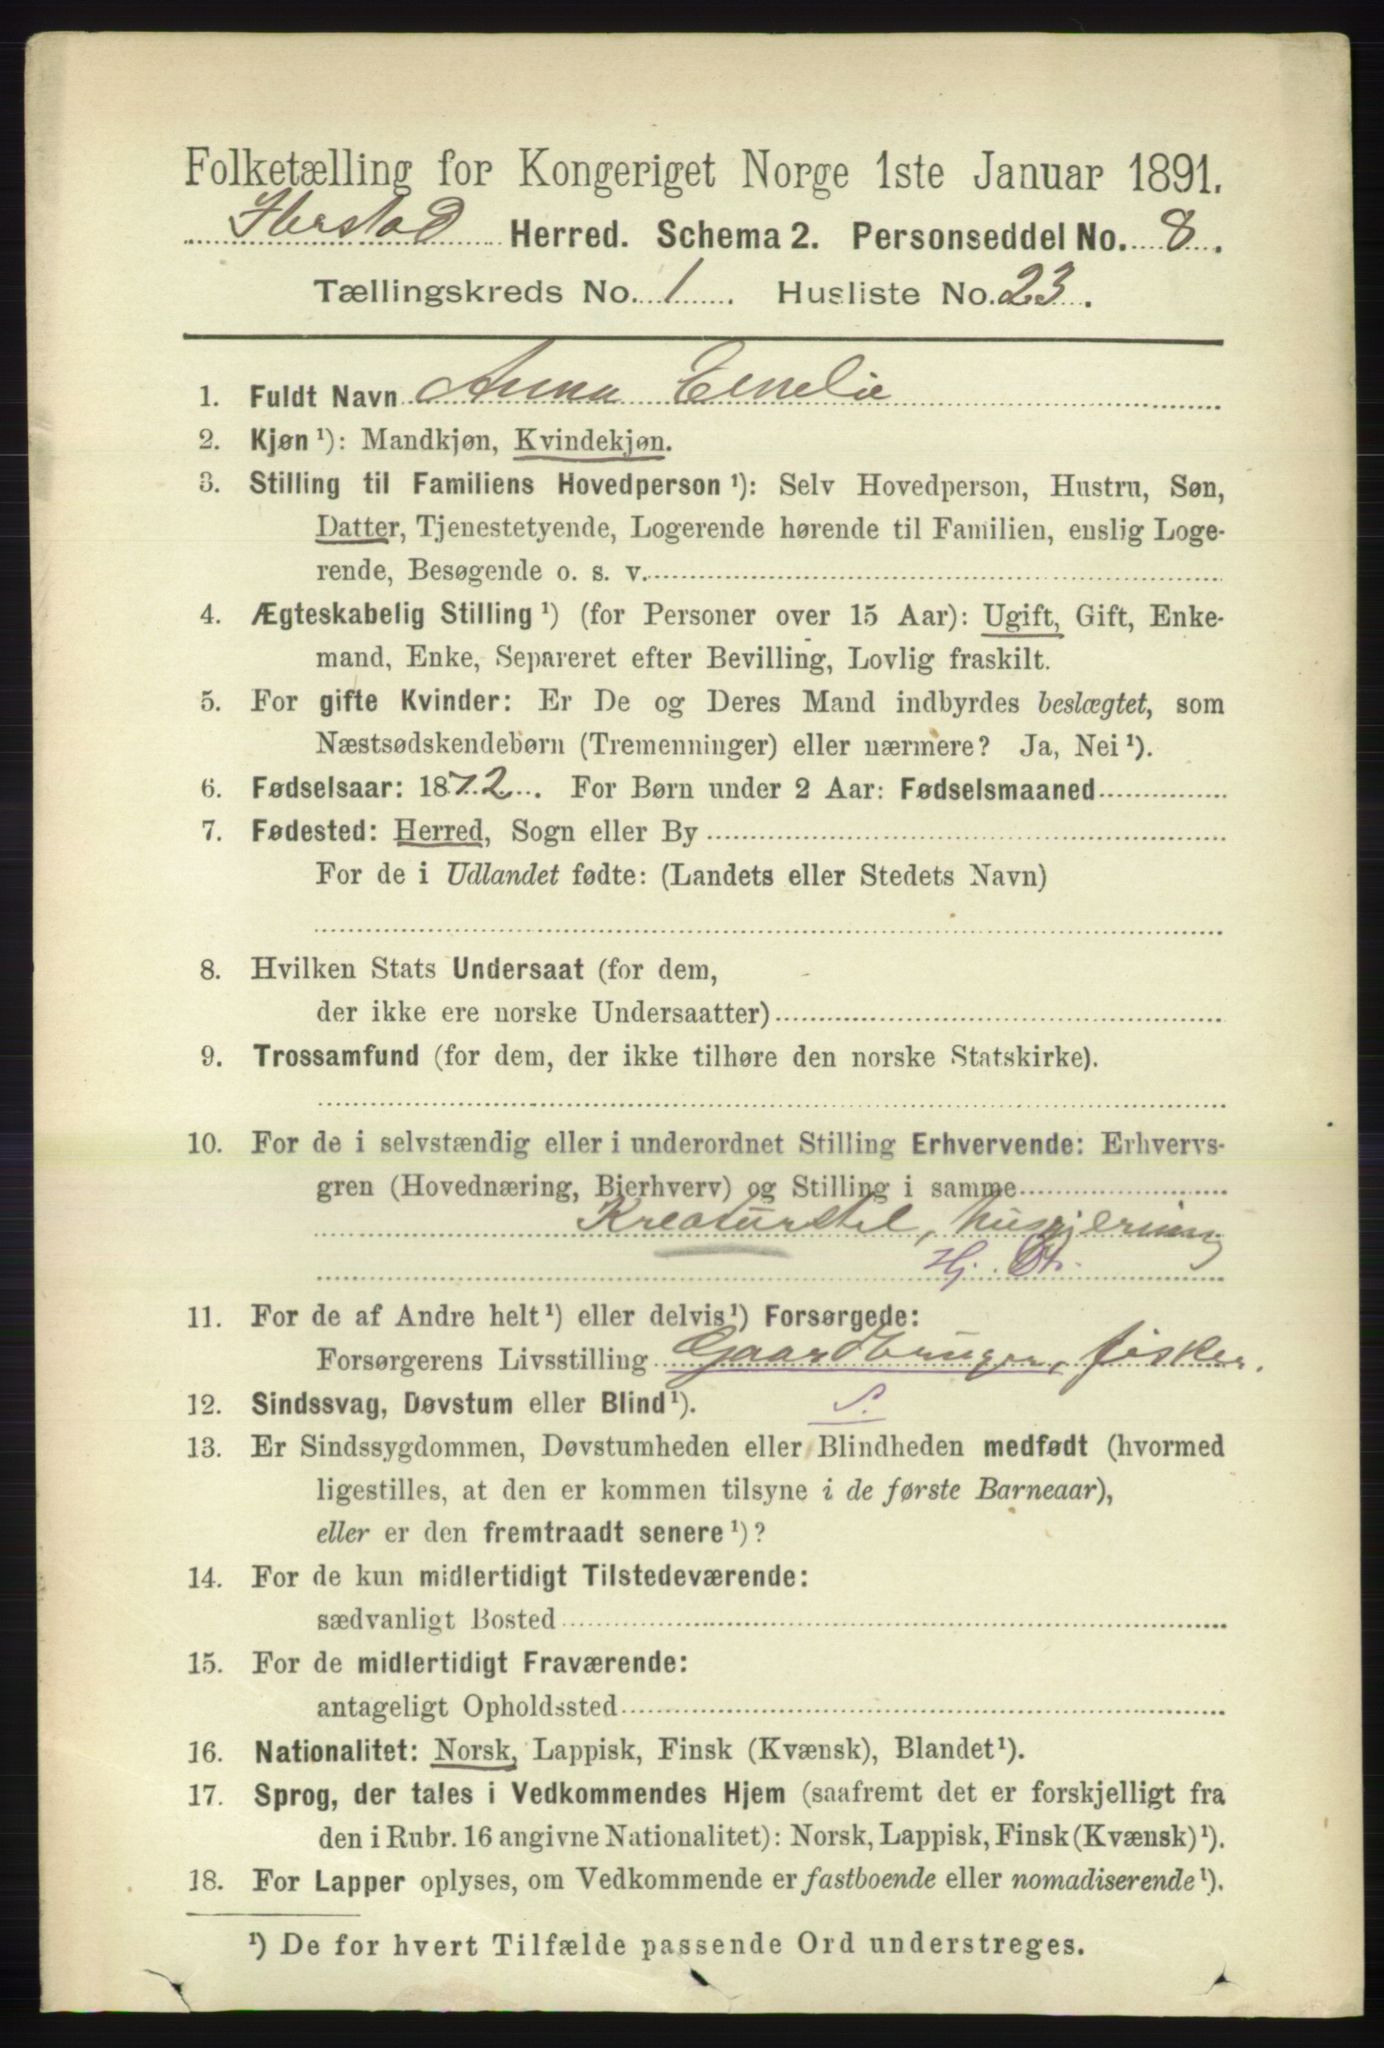 Folketælling for Kongeriget Norge 1ste Januar 1891.
Ibestad Herred. Schema 2. Personseddel No. 8.
Tællingskreds No. 1. Husliste No. 23.
1. Fuldt Navn Anna Emelie
2. Kjøn ¹): Mandkjøn, Kvindekjøn.
3. Stilling til Familiens Hovedperson ¹): Selv Hovedperson, Hustru, Søn,
Datter, Tjenestetyende, Logerende hørende til Familien, enslig Loge-
rende, Besøgende o. s. v.
4. Ægteskabelig Stilling ¹) (for Personer over 15 Aar): Ugift, Gift, Enke-
mand, Enke, Separeret efter Bevilling, Lovlig fraskilt.
5. For gifte Kvinder: Er De og Deres Mand indbyrdes beslægtet, som
Næstsødskendebørn (Tremenninger) eller nærmere? Ja, Nei ¹).
6. Fødselsaar: 1872. For Børn under 2 Aar: Fødselsmaaned
7. Fødested: Herred, Sogn eller By
For de i Udlandet fødte: (Landets eller Stedets Navn)
8. Hvilken Stats Undersaat (for dem,
der ikke ere norske Undersaatter)
9. Trossamfund (for dem, der ikke tilhøre den norske Statskirke).
10. For de i selvstændig eller i underordnet Stilling Erhvervende: Erhvervs-
gren (Hovednæring, Bierhverv) og Stilling i samme
Kreaturstel, husgjerning
Hj. Dtr.
11. For de af Andre helt ¹) eller delvis ¹) Forsørgede:
Forsørgerens Livsstilling Gaardbruger, fisker.
12. Sindssvag, Døvstum eller Blind ¹). S.
13. Er Sindssygdommen, Døvstumheden eller Blindheden medfødt (hvormed
ligestilles, at den er kommen tilsyne i de første Barneaar),
eller er den fremtraadt senere ¹)?
14. For de kun midlertidigt Tilstedeværende:
sædvanligt Bosted
15. For de midlertidigt Fraværende:
antageligt Opholdssted
16. Nationalitet: Norsk, Lappisk, Finsk (Kvænsk), Blandet ¹).
17. Sprog, der tales i Vedkommendes Hjem (saafremt det er forskjelligt fra
den i Rubr. 16 angivne Nationalitet): Norsk, Lappisk, Finsk (Kvænsk) ¹).
18. For Lapper oplyses, om Vedkommende er fastboende eller nomadiserende ¹).
¹) De for hvert Tilfælde passende Ord understreges.